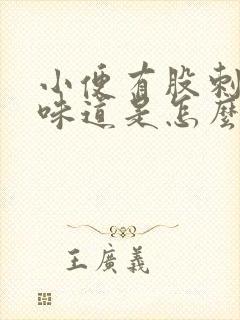 小便有股刺
味道是怎麼
王廣義